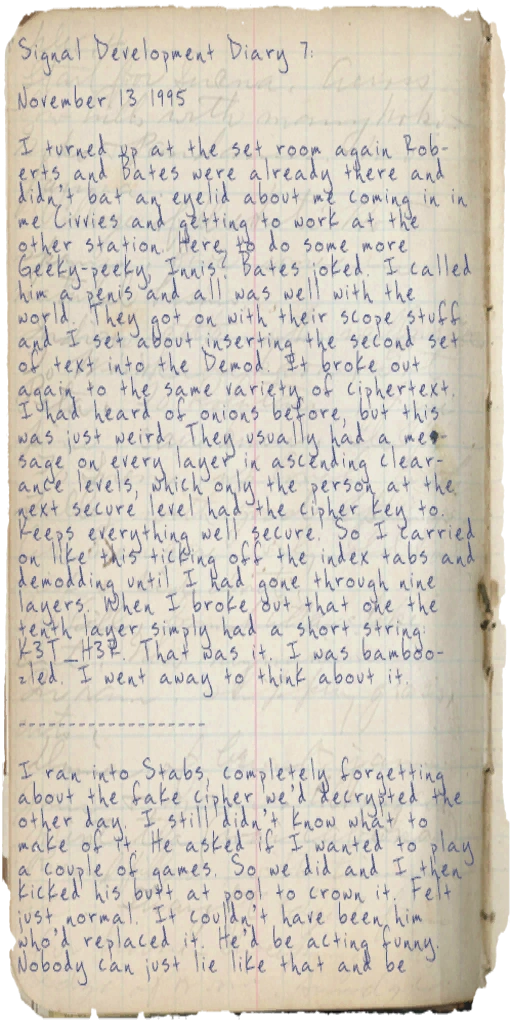 Signal Development Diary 7:
November 13 1995
I turned up at the set room again Rob-
erts and Bates were already there and
didn't bat an eyelid about me coming in in
me Civvies and getting to work at the
other station. Here to do some more
Geeky-peeky, Innis? Bates joked. I called
him a penis and all was well with the
world. They got on with their scope stuff
and I set about inserting the second set
of text into the Demod. It broke out
again to the same variety of ciphertext.
I had heard of onions before, but this
was just weird. They usually had a mes-
sage on every layer in ascending clear-
ance levels, which only the person at the
next secure level had the cipher key to.
Keeps everything well secure. So I carried
on like this ticking off the index tabs and
demodding until I had gone through nine
layers. When I broke out that one the
tenth layer simply had a short string:
K3T_H3R. That was it. I was bamboo-
zled. I went away to think about it.
------------------
I ran into Stabs, completely forgetting
about the fake cipher we'd decrypted the
other day. I still didn't know what to
make of it. He asked if I wanted to play
a couple of games. So we did and I then
kicked his butt at pool to crown it. Felt
just normal. It couldn't have been him
who'd replaced it. He'd be acting funny.
Nobody can just lie like that and be